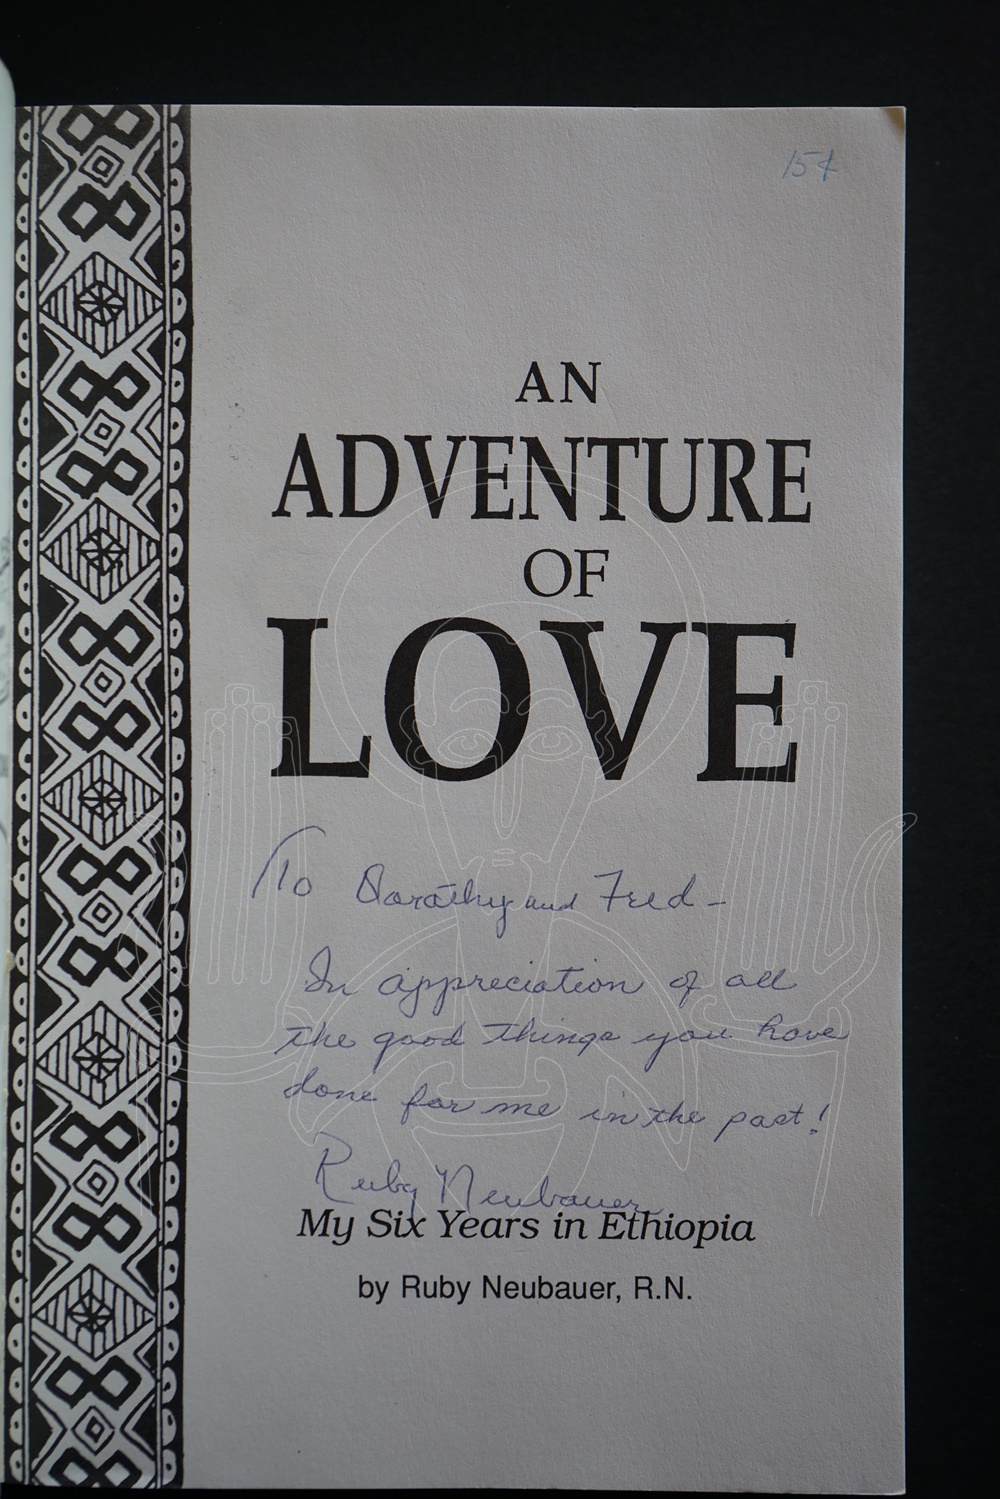 15¢
AN
ADVENTURE
OF
LOVE
To Dorothy and Fred -
In appreciation of all
the good things you have
done for me in the past!
Ruby Neubauer
My Six Years in Ethiopia
by Ruby Neubauer, R.N.